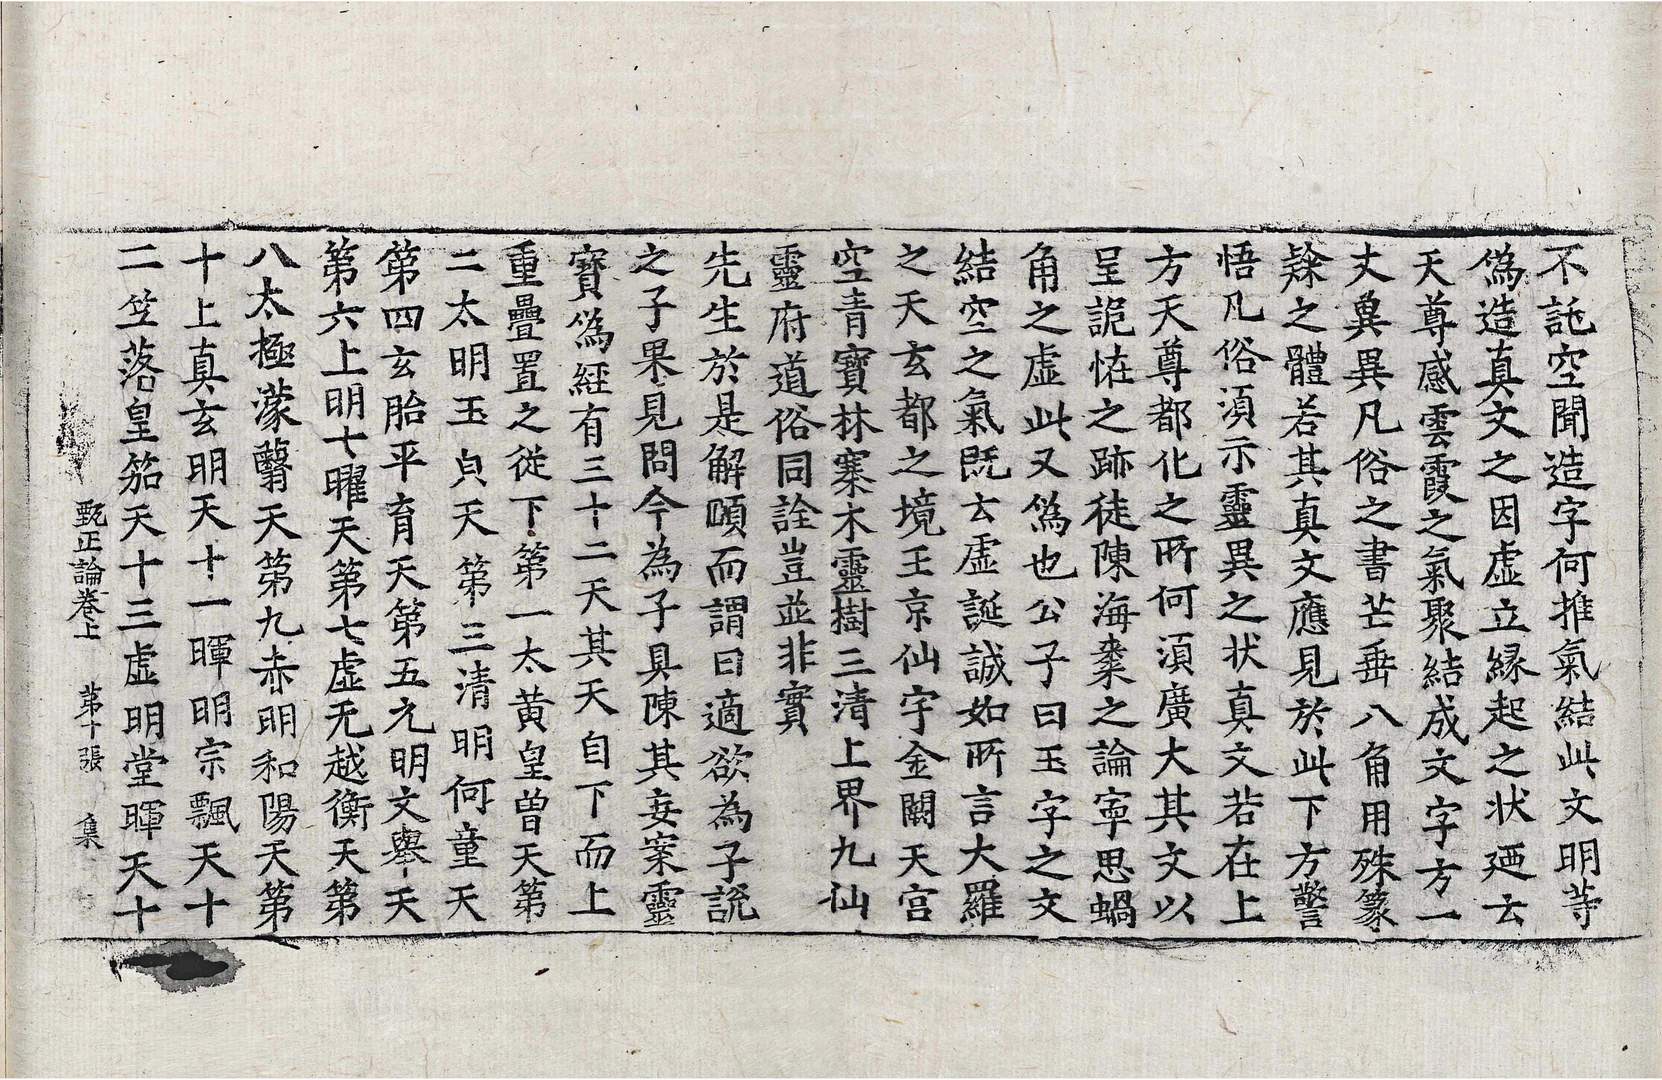 不託空聞造字何推氣結此文明等
偽造真文之因虛立緣起之狀廼云
天尊感雲霞之氣聚結成文字方一
丈龯異凡俗之書芒垂八角用殊篆
隸之體若其真文應見於此下方警
悟凡俗須示靈異之狀真文若在上
方天尊都化之所何須廣大其文以
呈詭恠之跡徒陳海棗之論寧思蝸
角之虛此又偽也公子曰玉字之文
結空之氣既云虛誕誠如所言大羅
之天玄都之境玉京仙宇金闕天宮
空青寶林騫木靈樹三清上界九仙
靈府道俗同詮豈並非實
先生於是解頤而謂曰適欲為子說
之子果見問今為子具陳其妄案靈
寶偽經有三十二天其天自下而上
重疊置之從下第一太黃皇曾天第
二太明玉貞天第三清明何童天
第四玄胎平育天第五元明文舉天
第六上明七曜天第七虛无越衡天第
八太極濛翳天第九赤明和陽天第
十上真玄明天十一暉明宗飄天十
二笠落皇笳天十三虛明堂暉天十
甄正論卷上 第十張 集